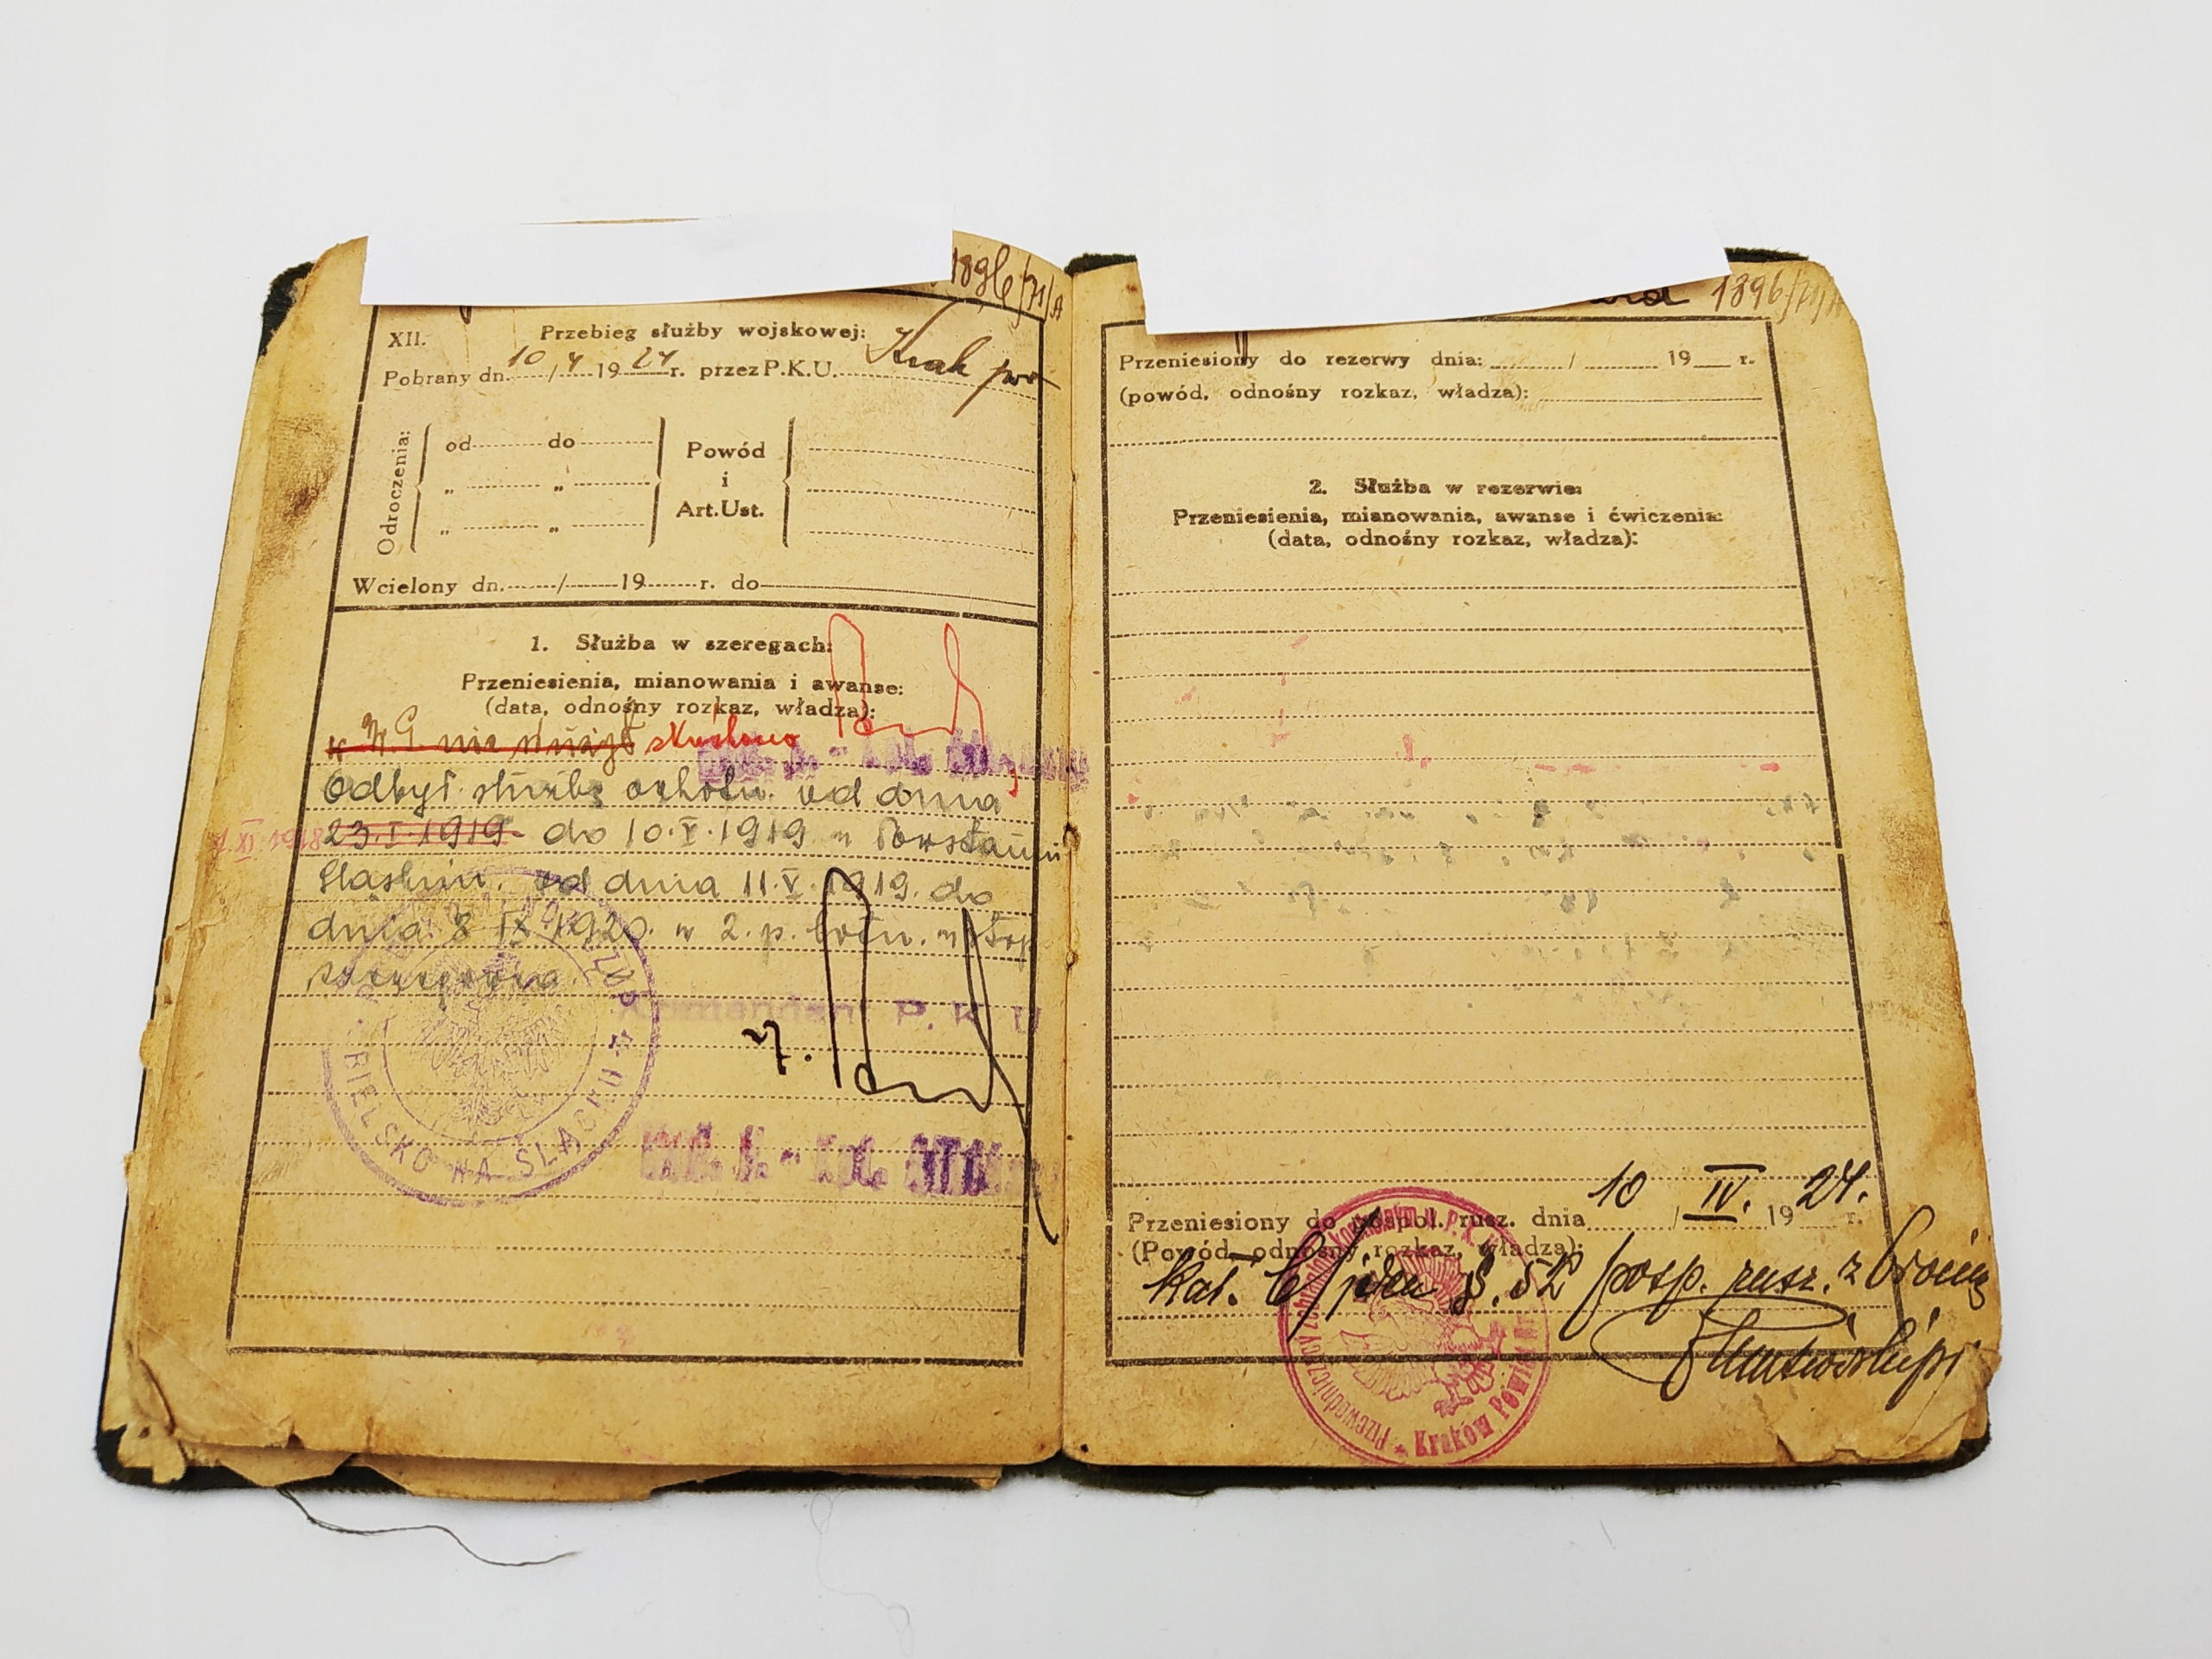 1896/71/A
XII. Przebieg służby wojskowej:
Pobrany dn. 10/4 1924 r. przez P.K.U. Krak pow
Odroczenia:
od do
„ „
„ „
Powód
i
Art. Ust.
Wcielony dn. / 19 r. do
1. Służba w szeregach:
Przeniesienia, mianowania i awanse:
(data, odnośny rozkaz, władza):
w W.P. nie służył skreślono
Odbył służbę ochotn. od dnia
1.XI.1918 23.I.1919 do 10.V.1919 w Powstaniu
Śląskim. od dnia 11.V.1919. do
dnia 8 IX 1920. w 2. p. lotn. w stop
szeregowca
Komendant P.K.U
BIELSKO NA ŚLĄSKU
1896/71/A
Przeniesiony do rezerwy dnia: / 19 r.
(powód, odnośny rozkaz, władza):
2. Służba w rezerwie:
Przeniesienia, mianowania, awanse i ćwiczenia:
(data, odnośny rozkaz, władza):
Przeniesiony do pospol. rusz. dnia 10 / IV. 1924. r.
(Powód, odnośny rozkaz, władza):
Kat. C/jeden § 52 posp. rusz. z bronią
Kraków Powiat